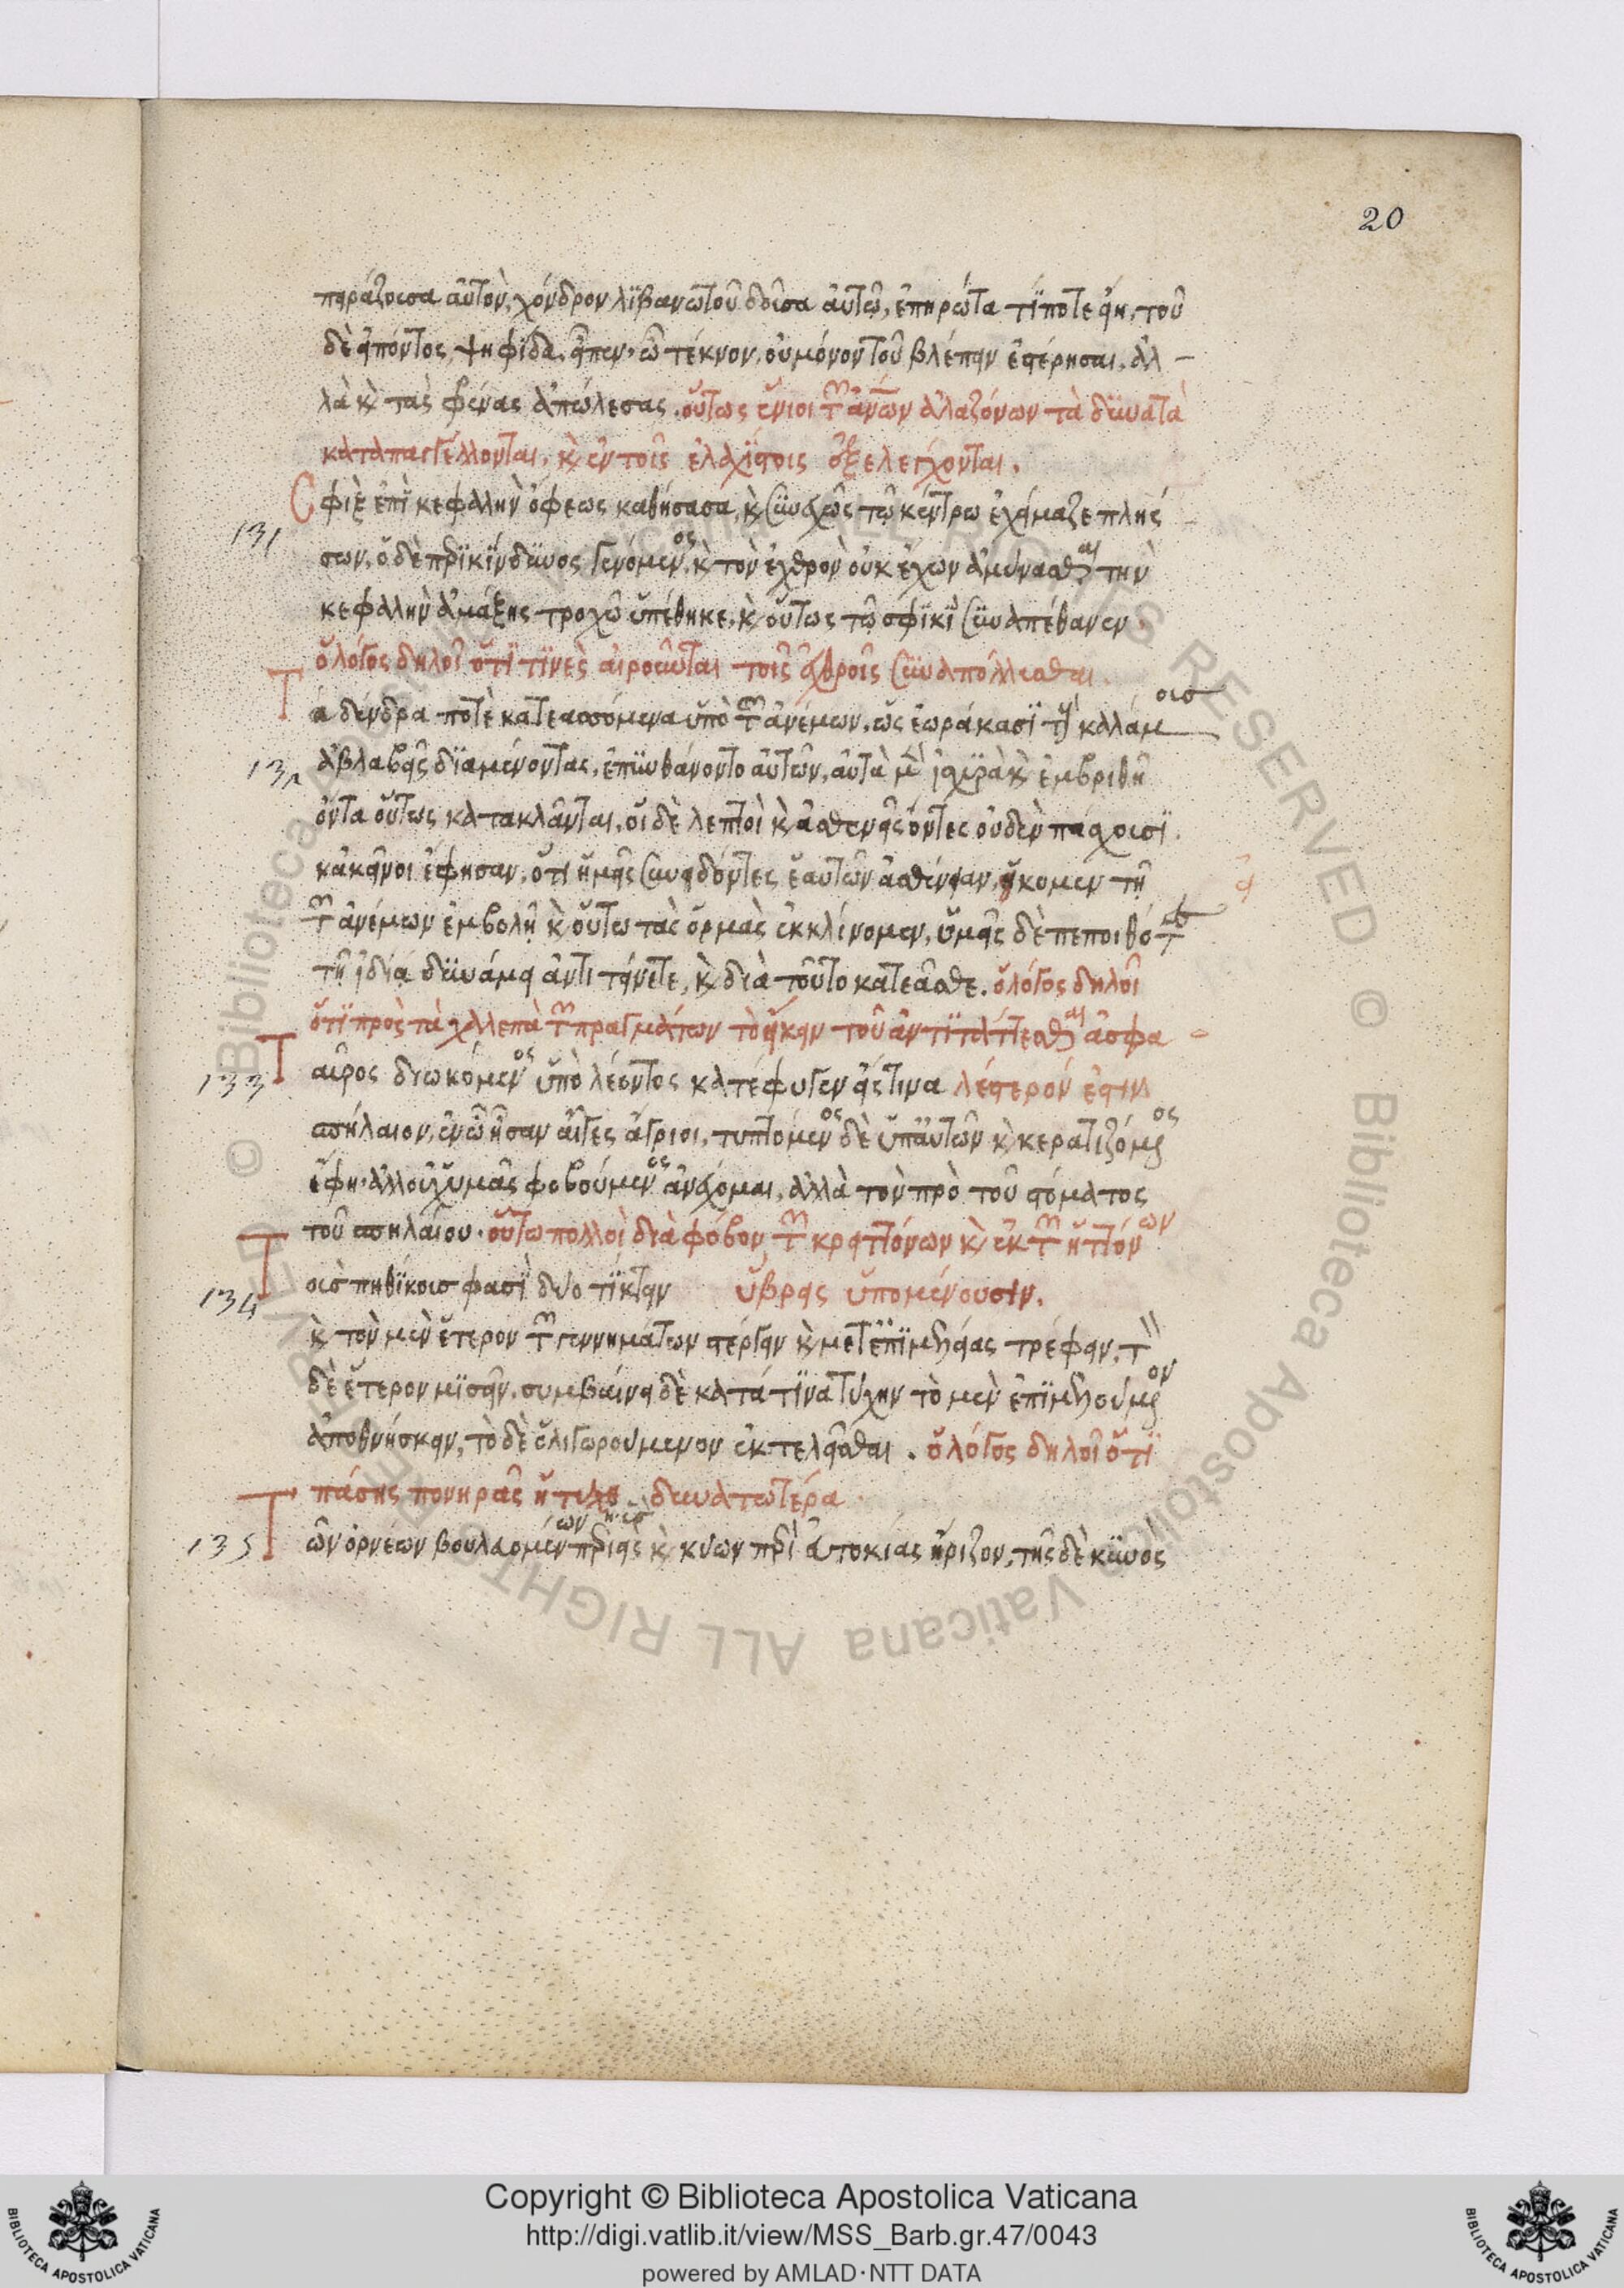 20
πειράζουσα αὐτὸν, χόνδρον λιβανωτοῦ δοῦσα αὐτῷ, ἐπηρώτα τί ποτε εἴη, τοῦ
δὲ εἰπόντος, ψηφίδα, εἶπεν· ὦ τέκνον, οὐ μόνον τοῦ βλέπειν ἐστέρησαι, ἀλ-
λὰ κ τὰς φρένας ἀπώλεσας. οὕτως ἔνιοι τῶν ἀνων ἀλαζόνων τὰ δυνατὰ
καταπαγγέλλονται, κ ἐν τοῖς ἐλαχίστοις ἐξελέγχονται.
131 Σφὶξ ἐπὶ κεφαλὴν ὄφεως καθήσασα, κ συνεχῶς τῷ κέντρω ἐχείμαζε πλής
σων, ὁ δὲ περικίνδυνος γενόμενος, κ τὸν ἐχθρὸν οὐκ ἔχων ἀμύνασθαι τὴν
κεφαλὴν ἁμάξης τροχῶ ὑπέθηκε, κ οὕτως τῷ σφικὶ συναπέθανεν.
ὁ λόγος δηλοῖ ὅτι τινὲς αἱροῦνται τοῖς ἐχθροῖς συναπόλλυσθαι.
132 Τὰ δένδρα ποτὲ κατεασσόμενα ὑπὸ τῶν ἀνέμων, ὡς ἑωράκασι τοὺς καλάμοις
ἀβλαβεῖς διαμένοντας, ἐπυνθάνοντο αὐτῶν, αὐτὰ μὲν ἰσχυρὰ κ ἐμβριθῆ
ὄντα οὕτως κατακλᾶνται, οἱ δὲ λεπτοὶ κ ἀσθενεῖς ὄντες οὐδὲν πάσχουσι.
κἀκεῖνοι ἔφησαν, ὅτι ἡμεῖς συνειδόντες ἑαυτῶν ἀσθένειαν, εἴκομεν τῇ
τῶν ἀνέμων ἐμβολῇ κ οὕτω τὰς ὁρμὰς ἐκκλίνομεν, ὑμεῖς δὲ πεποιθότες
τῇ ἰδίᾳ δυνάμει ἀντιτείνετε, κ διὰ τοῦτο κατεᾶσθε. ὁ λόγος δηλοῖ
ὅτι πρὸς τὰ χαλεπὰ τῶν πραγμάτων τὸ εἴκειν τοῦ ἀντιτάττεσθαι ἀσφα
133 Ταῦρος διωκόμενος ὑπὸ λέοντος κατέφυγεν εἴς τινα λέστερόν ἐστιν
σπήλαιον, ἐν ὧ ἦσαν αἶγες ἄγριοι, τυπτόμενος δὲ ὑπ' αὐτῶν κ κερατιζόμενος
ἔφη· ἀλλ' οὐχ ὑμᾶς φοβούμενος ἀνέχομαι, ἀλλὰ τὸν πρὸ τοῦ στόματος
τοῦ σπηλαίου. οὕτω πολλοὶ διὰ φόβον τῶν κρειττόνων κ ἐκ τῶν ἡττόνων
134 Τοὺς πηθίκους φασὶ δύο τίκτειν ὕβρεις ὑπομένουσιν.
κ τὸν μὲν ἕτερον τῶν γεννημάτων στέργειν κ μετ' ἐπιμελείας τρέφειν, τὸν
δὲ ἕτερον μισεῖν. συμβαίνει δὲ κατά τινα τύχην τὸ μὲν ἐπιμελούμενον
ἀποθνήσκειν, τὸ δὲ ὀλιγωρούμενον ἐκτελεῖσθαι. ὁ λόγος δηλοῖ ὅτι
πάσης πονηρᾶς ἡ τύχη δυνατωτέρα
135 Τῶν ὀρνέων βουλαομένων κ κύων περὶ εὐτοκίας ἤριζον, τῆς δὲ κυνὸς
Copyright © Biblioteca Apostolica Vaticana
http://digi.vatlib.it/view/MSS_Barb.gr.47/0043
powered by AMLAD·NTT DATA
BIBLIOTECA APOSTOLICA VATICANA
BIBLIOTECA APOSTOLICA VATICANA
© Biblioteca Apostolica Vaticana ALL RIGHTS RESERVED